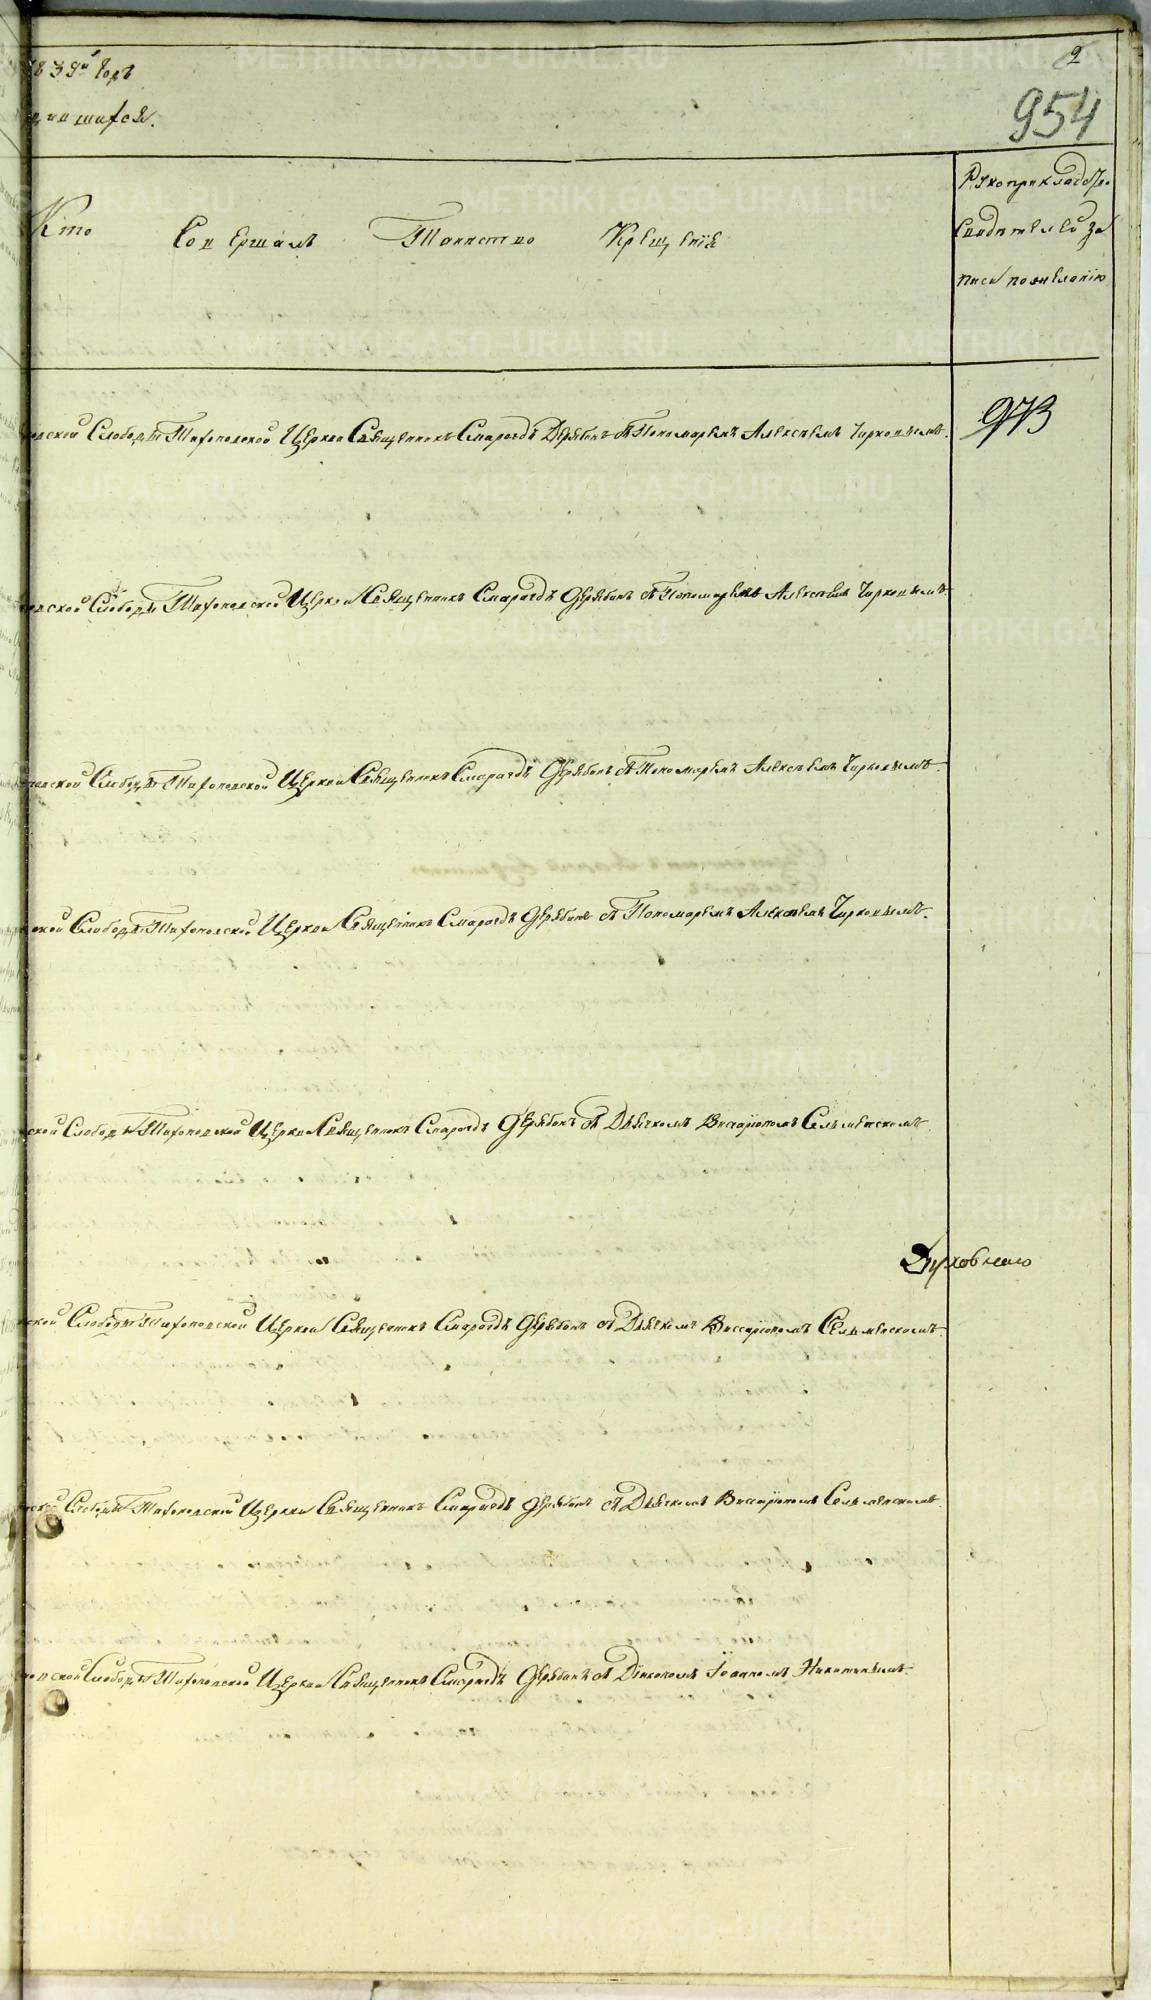 1839й Годъ
2
дившихся.
954
Кто Совершалъ Таинство Крещенiя
Рукоприкладство
Свидѣтелей за
писи по желанiю
973
Слободы Тихоновской Церкви Священникъ Смарагдъ Дерябинъ съ Пономаремъ Алексѣемъ Чирковымъ.
Слободы Тихоновской Церкви Священникъ Смарагдъ Дерябинъ съ Пономаремъ Алексѣемъ Чирковымъ.
Слободы Тихоновской Церкви Священникъ Смарагдъ Дерябинъ съ Пономаремъ Алексѣемъ Чирковымъ.
Слободы Тихоновской Церкви Священникъ Смарагдъ Дерябинъ съ Пономаремъ Алексѣемъ Чирковымъ.
Слободы Тихоновской Церкви Священникъ Смарагдъ Дерябинъ съ Дьячкомъ Виссарiономъ Селменскомъ.
Духовнаго
Слободы Тихоновской Церкви Священникъ Смарагдъ Дерябинъ съ Дьячкомъ Виссарiономъ Селменскомъ.
Слободы Тихоновской Церкви Священникъ Смарагдъ Дерябинъ съ Дьячкомъ Виссарiономъ Селменскомъ.
Слободы Тихоновской Церкви Священникъ Смарагдъ Дерябинъ съ Дiакономъ Iоанномъ Никитинымъ.
METRIKI.GASO-URAL.RU